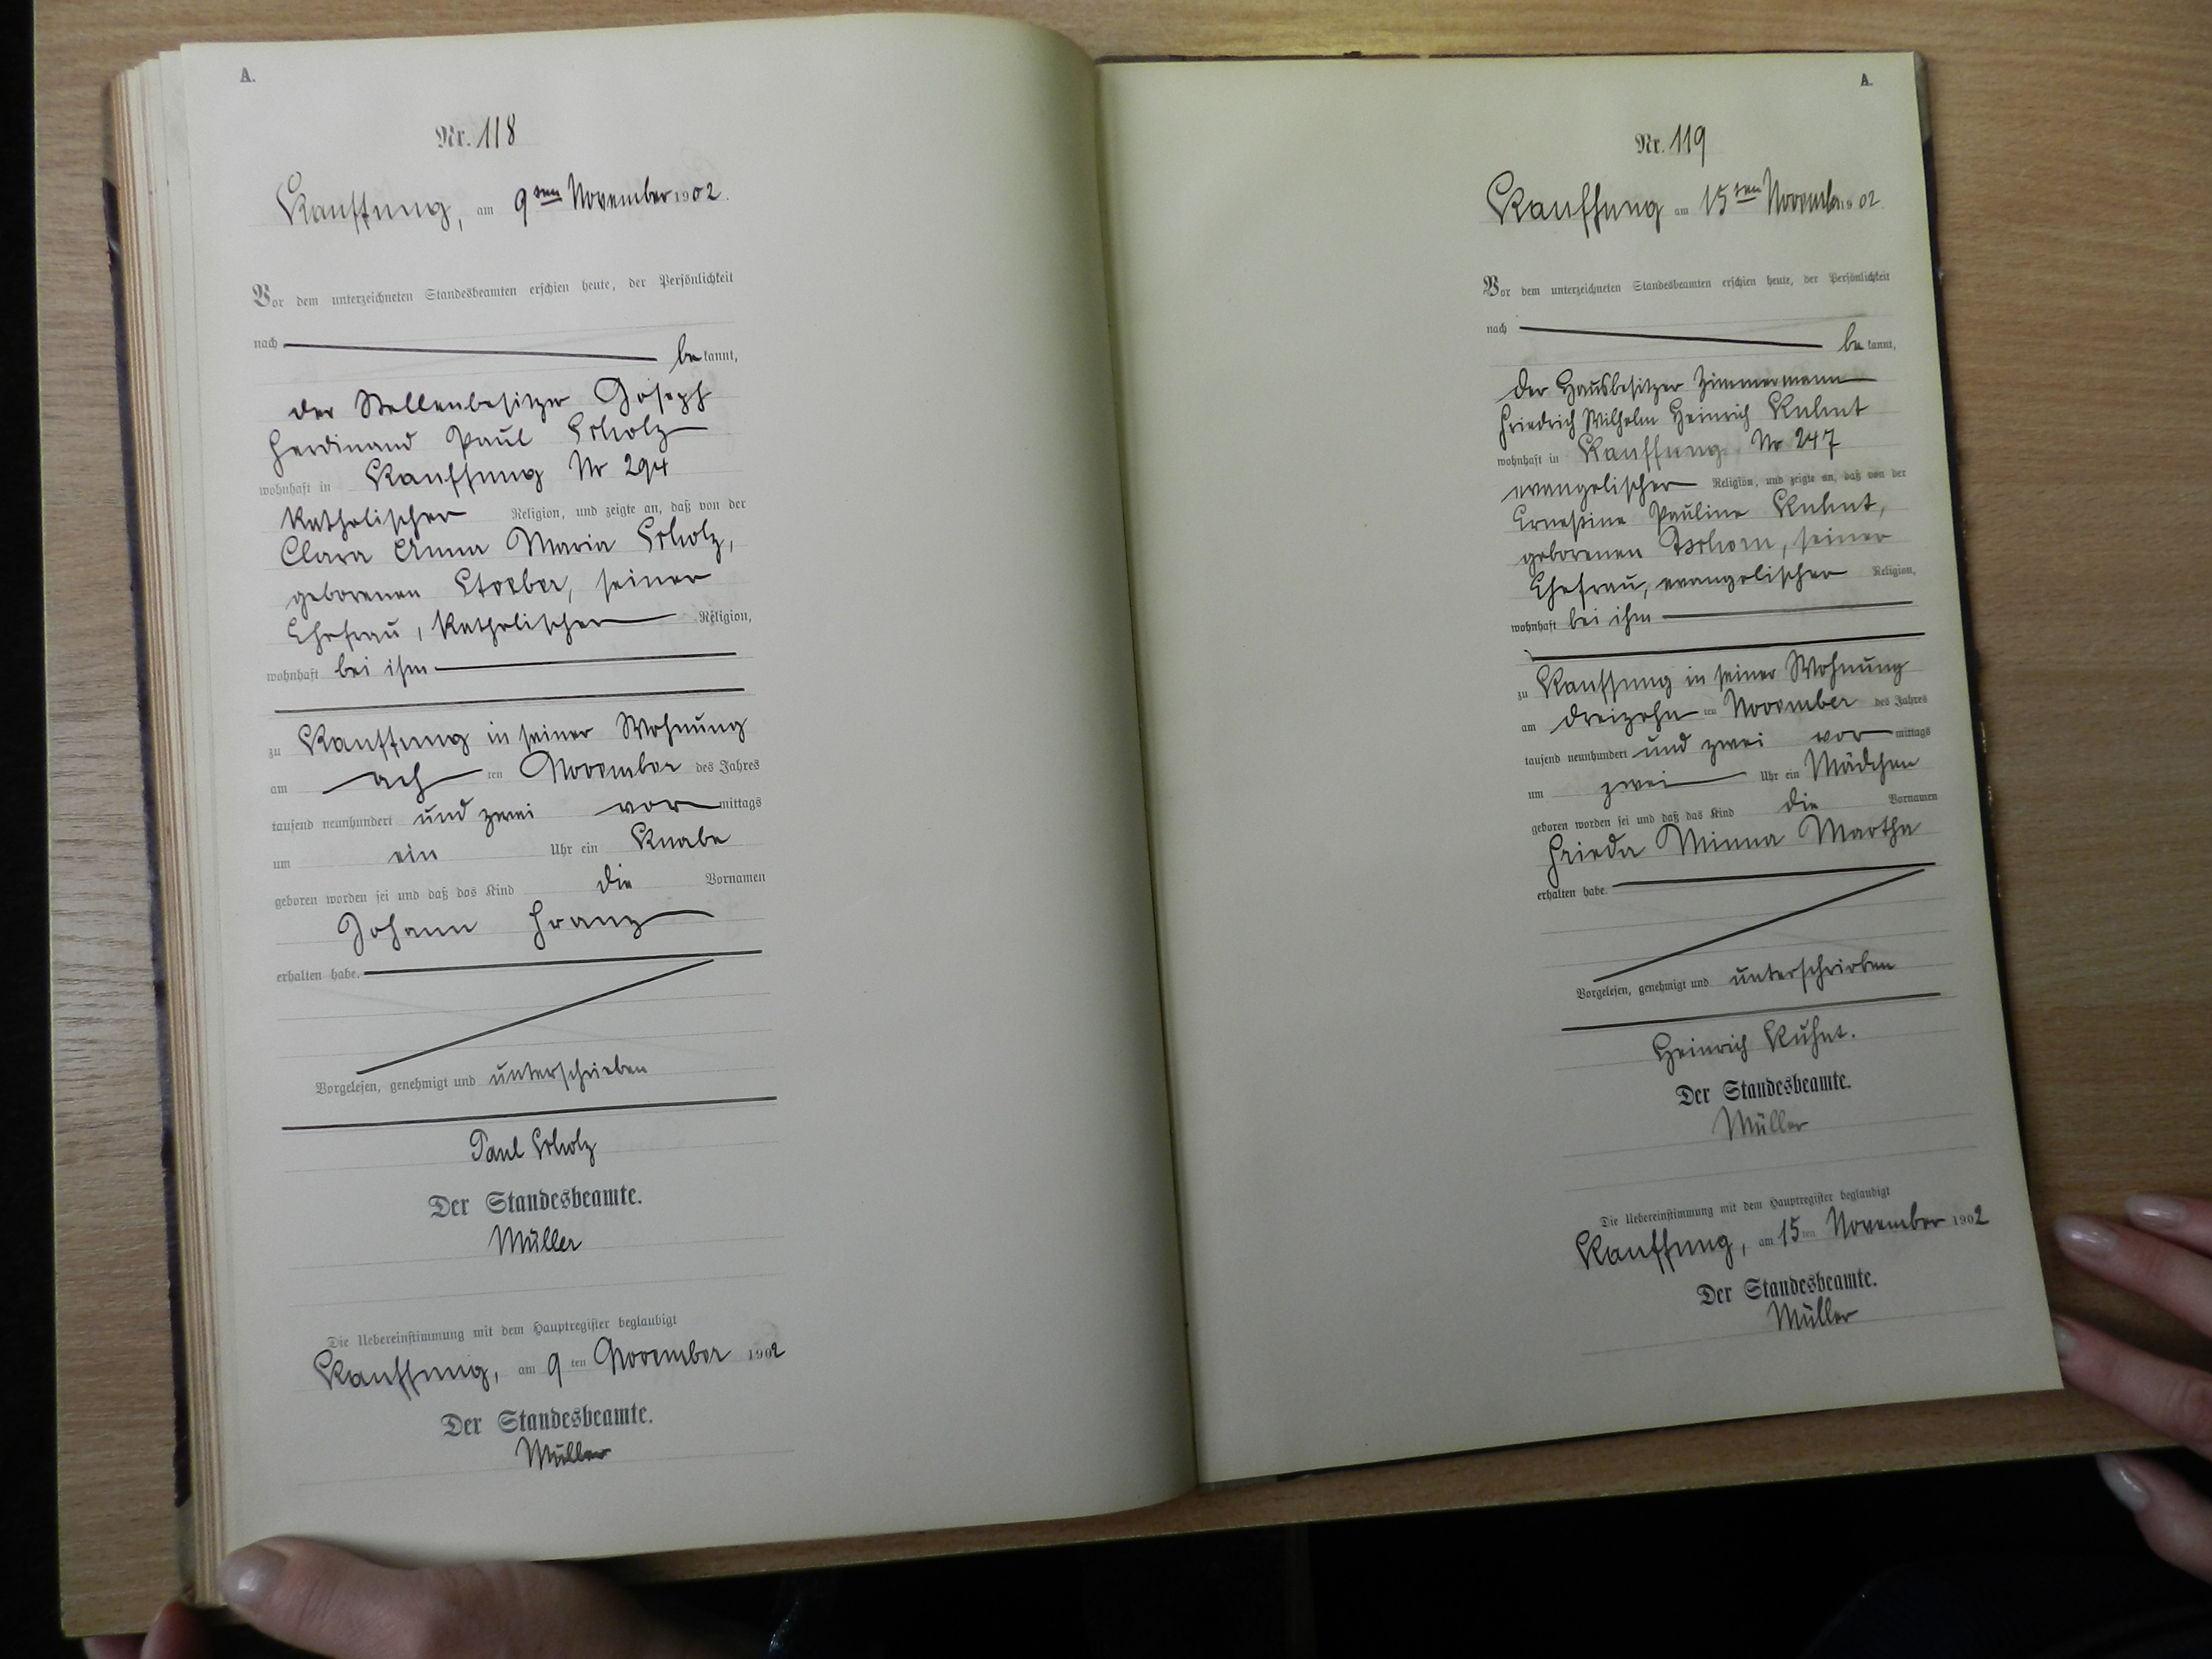 A.
Nr. 118
Kauffung, am 9ten November 1902.
Vor dem unterzeichneten Standesbeamten erschien heute, der Persönlichkeit
nach be kannt,
der Stellenbesitzer Joseph
Ferdinand Paul Scholz
wohnhaft in Kauffung Nr 294
katholischer Religion, und zeigte an, daß von der
Clara Anna Maria Scholz,
geborenen Stoeber, seiner
Ehefrau, katholischer Religion,
wohnhaft bei ihm
zu Kauffung in seiner Wohnung
am ach ten November des Jahres
tausend neunhundert und zwei vor mittags
um ein Uhr ein Knabe
geboren worden sei und daß das Kind die Vornamen
Johann Franz
erhalten habe.
Vorgelesen, genehmigt und unterschrieben
Paul Scholz
Der Standesbeamte.
Müller
Die Uebereinstimmung mit dem Hauptregister beglaubigt
Kauffung, am 9 ten November 1902
Der Standesbeamte.
Müller
A.
Nr. 119
Kauffung am 15ten November 1902.
Vor dem unterzeichneten Standesbeamten erschien heute, der Persönlichkeit
nach be kannt,
der Hausbesitzer Zimmermann
Friedrich Wilhelm Heinrich Kuhnt
wohnhaft in Kauffung Nr 247
evangelischer Religion, und zeigte an, daß von der
Ernestine Pauline Kuhnt,
geborenen Tschorn, seiner
Ehefrau, evangelischer Religion,
wohnhaft bei ihm
zu Kauffung in seiner Wohnung
am dreizehn ten November des Jahres
tausend neunhundert und zwei vor mittags
um zwei Uhr ein Mädchen
geboren worden sei und daß das Kind die Vornamen
Frieda Minna Martha
erhalten habe.
Vorgelesen, genehmigt und unterschrieben
Heinrich Kuhnt.
Der Standesbeamte.
Müller
Die Uebereinstimmung mit dem Hauptregister beglaubigt
Kauffung, am 15 ten November 1902
Der Standesbeamte.
Müller